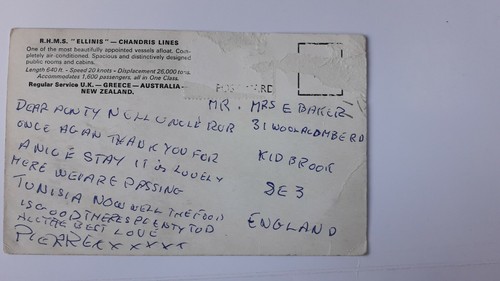 R.H.M.S. "ELLINIS" — CHANDRIS LINES
One of the most beautifully appointed vessels afloat. Com-
pletely air-conditioned. Spacious and distinctively designed
public rooms and cabins.
Length 640 ft. - Speed 20 knots - Displacement 26,000 tons.
Accommodates 1,600 passengers, all in One Class.
Regular Service U.K. — GREECE — AUSTRALIA —
NEW ZEALAND.
DEAR AUNTY NELL UNCLE
ONCE AGAIN THANK YOU FOR
A NICE STAY IT IS LOVELY
HERE WE ARE PASSING
TUNISIA NOW WELL THE FOOD
IS GOOD THERES PLENTY TOO
ALL THE BEST LOVE
PIERRE X X X X X
MR. MRS E BAKER
31 WOOLACOMBE RD
KIDBROOK
SE 3
ENGLAND